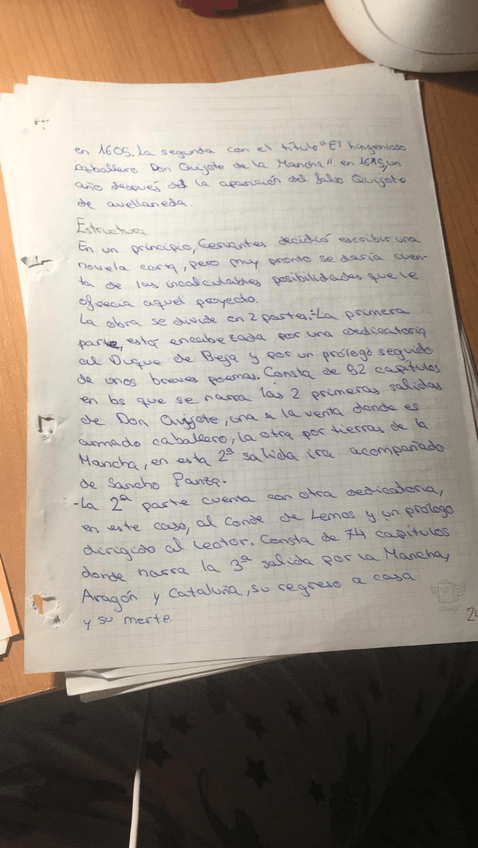 en 1605. La segunda con el título "El hingenioso
caballero Don Quijote de la Mancha" en 1615, un
año despues del la aparición del falso Quijote
de avellaneda.
Estructura
En un principio, Cervantes decidió escribir una
novela corta, pero muy pronto se daría cuen-
ta de las incalculables posibilidades que le
ofrecia aquel proyecto.
La obra se divide en 2 partes:-La primera
parte, está encabezada por una dedicatoria
al Duque de Beja y por un prólogo seguido
de unos breves poemas. Consta de 52 capítulos
en los que se narra las 2 primeras salidas
de Don Quijote, una a la venta donde es
armado caballero, la otra por tierras de la
Mancha, en esta 2ª salida irá acompañado
de Sancho Panza.
-La 2ª parte cuenta con otra dedicatoria,
en este caso, al Conde de Lemos y un prólogo
dirigido al lector. Consta de 74 capítulos
donde narra la 3ª salida por la Mancha,
Aragón y Cataluña, su regreso a casa
y su merte